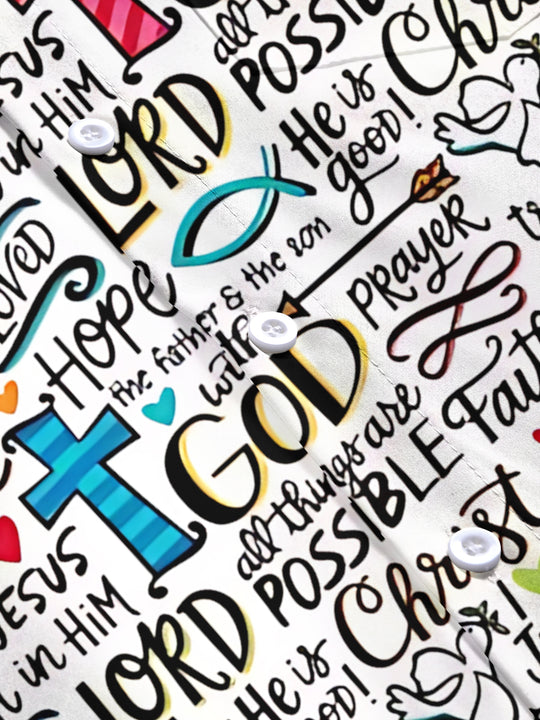 all th
POSSIB
Chri
ESUS
in HiM
LORD
He is
good!
LOVED
HOPE
the father & the son
PRAYER
with
GOD
all things are
POSSIBLE
Faith
Christ
JESUS
in HiM
LORD
He is
OOD!